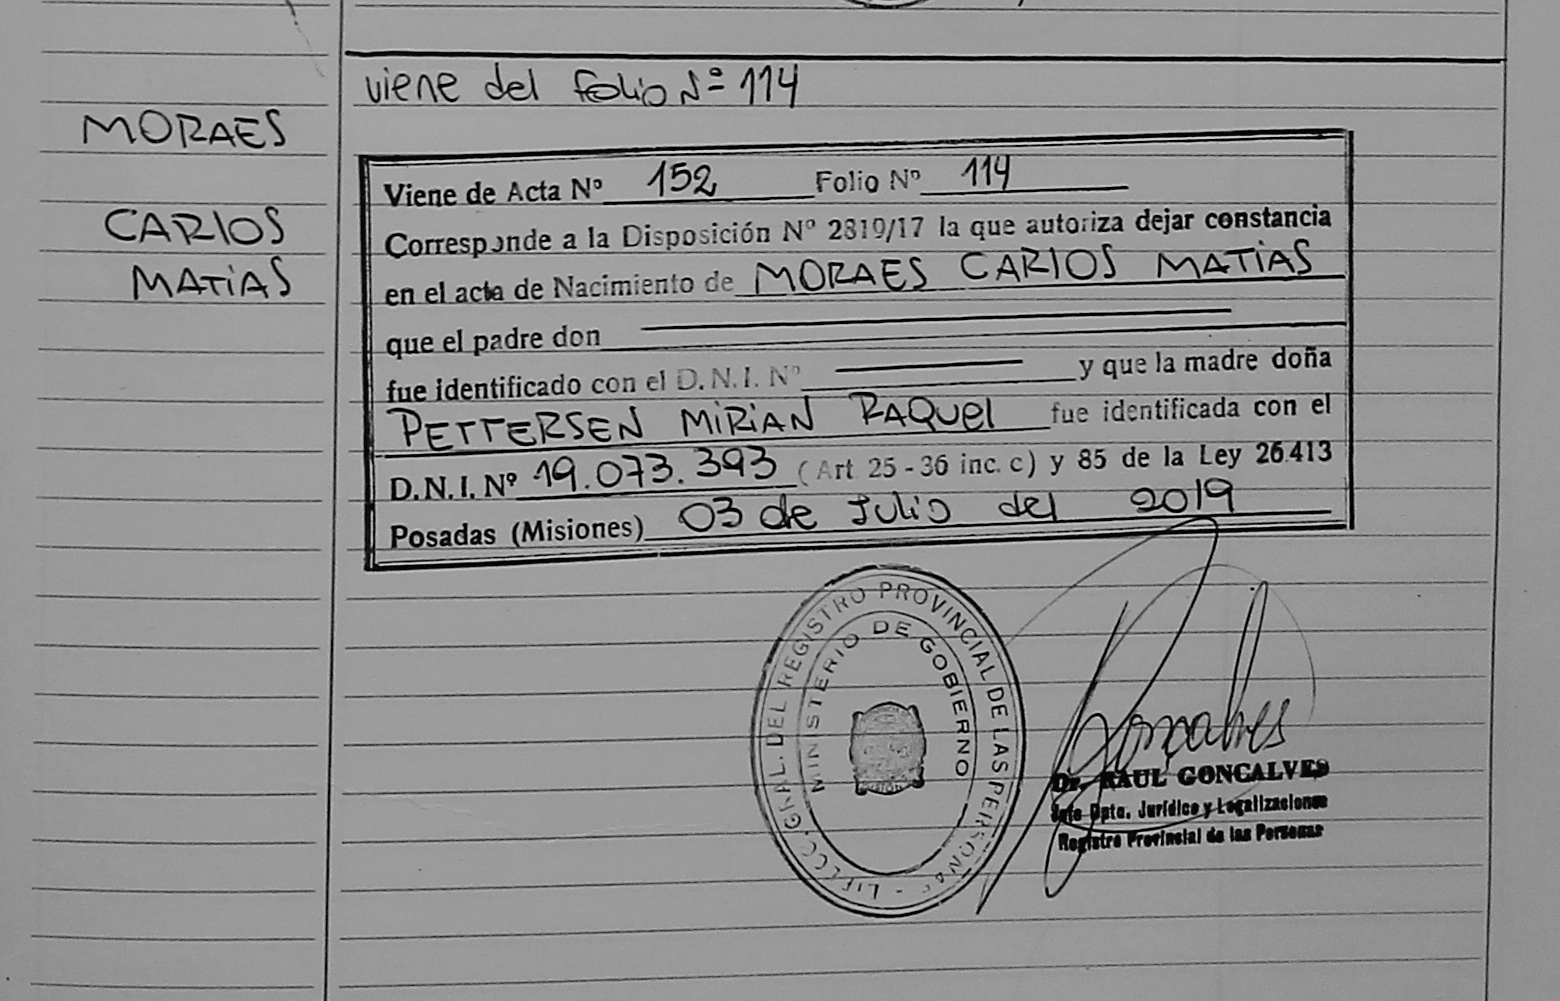 viene del folio Nº 114
MORAES
CARLOS
MATIAS
Viene de Acta Nº 152 Folio Nº 114
Corresponde a la Disposición Nº 2819/17 la que autoriza dejar constancia
en el acta de Nacimiento de MORAES CARLOS MATIAS
que el padre don
fue identificado con el D.N.I. Nº y que la madre doña
PETTERSEN MIRIAN RAQUEL fue identificada con el
D.N.I. Nº 19.073.393 (Art 25 - 36 inc. c) y 85 de la Ley 26.413
Posadas (Misiones) 03 de Julio del 2019
GRAL. DEL REGISTRO PROVINCIAL DE LAS PERSONAS
MINISTERIO DE GOBIERNO
Goncalves
Dr. RAUL GONCALVES
Jefe Dpto. Jurídico y Legalizaciones
Registro Provincial de las Personas